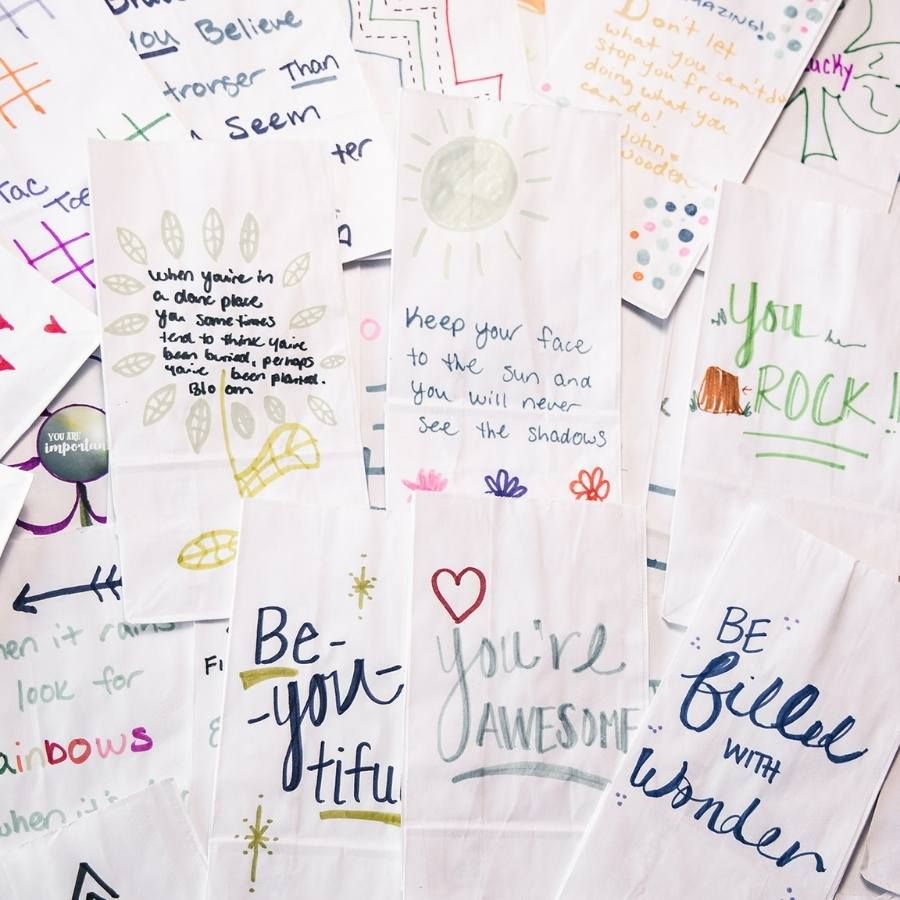 you Believe
Than
Seem
Tac Toe
AMAZING!
Don't let
what you can't do
stop you from
doing what you
can do!
John
Wooden
ucky
when you're in
a dark place
you sometimes
tend to think you've
been buried, perhaps
you've been planted.
Bloom
Keep your face
to the sun and
you will never
see the shadows
You
ROCK!!
YOU ARE
importan
hen it rains
look for
ainbows
when it's
Be-
-you-
tifu
You're
AWESOME
BE
filled
WITH
Wonder